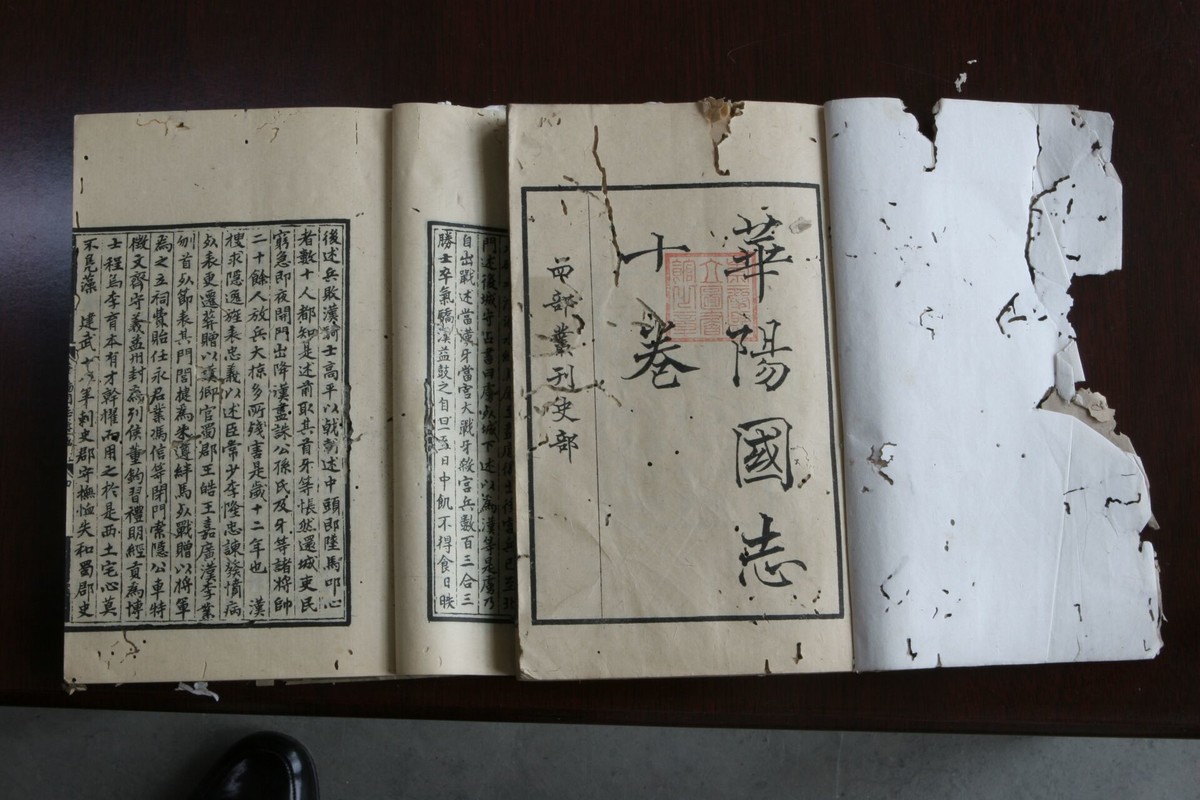 華陽國志
十卷
四部叢刊史部
自出戰述當漢牙當宮大戰牙殺宮兵數百三合三
勝士卒氣驕漢益鼓之自旦至日中飢不得食日昳
後述兵敗漢騎士高平以戟刺述中頭即墜馬叩心
者數十人都知是述前取其首牙等悵然還城吏民
窮急即夜開門出降漢盡誅公孫氏及牙等諸將帥
二十餘人放兵大掠多所殘害是歲十二年也 漢
搜求隱逸旌表忠義以述臣常少李隆忠諫發憤病
死表更遷葬贈以漢卿官蜀郡王皓王嘉廣漢李業
刎首死節表其門閭捷為朱遵絆馬死戰贈以將軍
為之立祠費貽任永君業馮信等閉門索隱公車特
徵文齊守義益州封為列侯董鈞習禮明經貢為博
士程烏李育本有才幹擢而用之於是西土宅心莫
不鳧藻 建武十八年刺史郡守撫恤失和蜀郡史